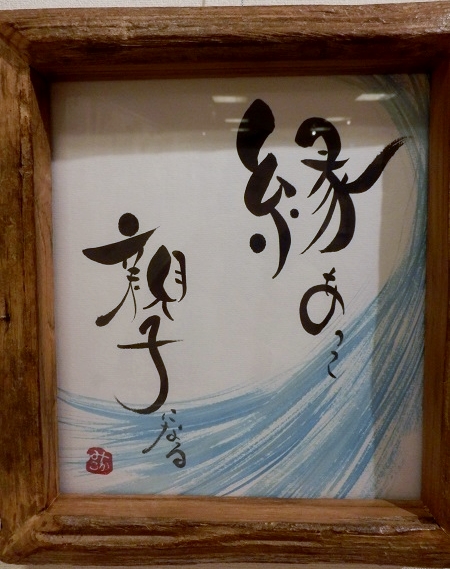 縁あって
親子になる